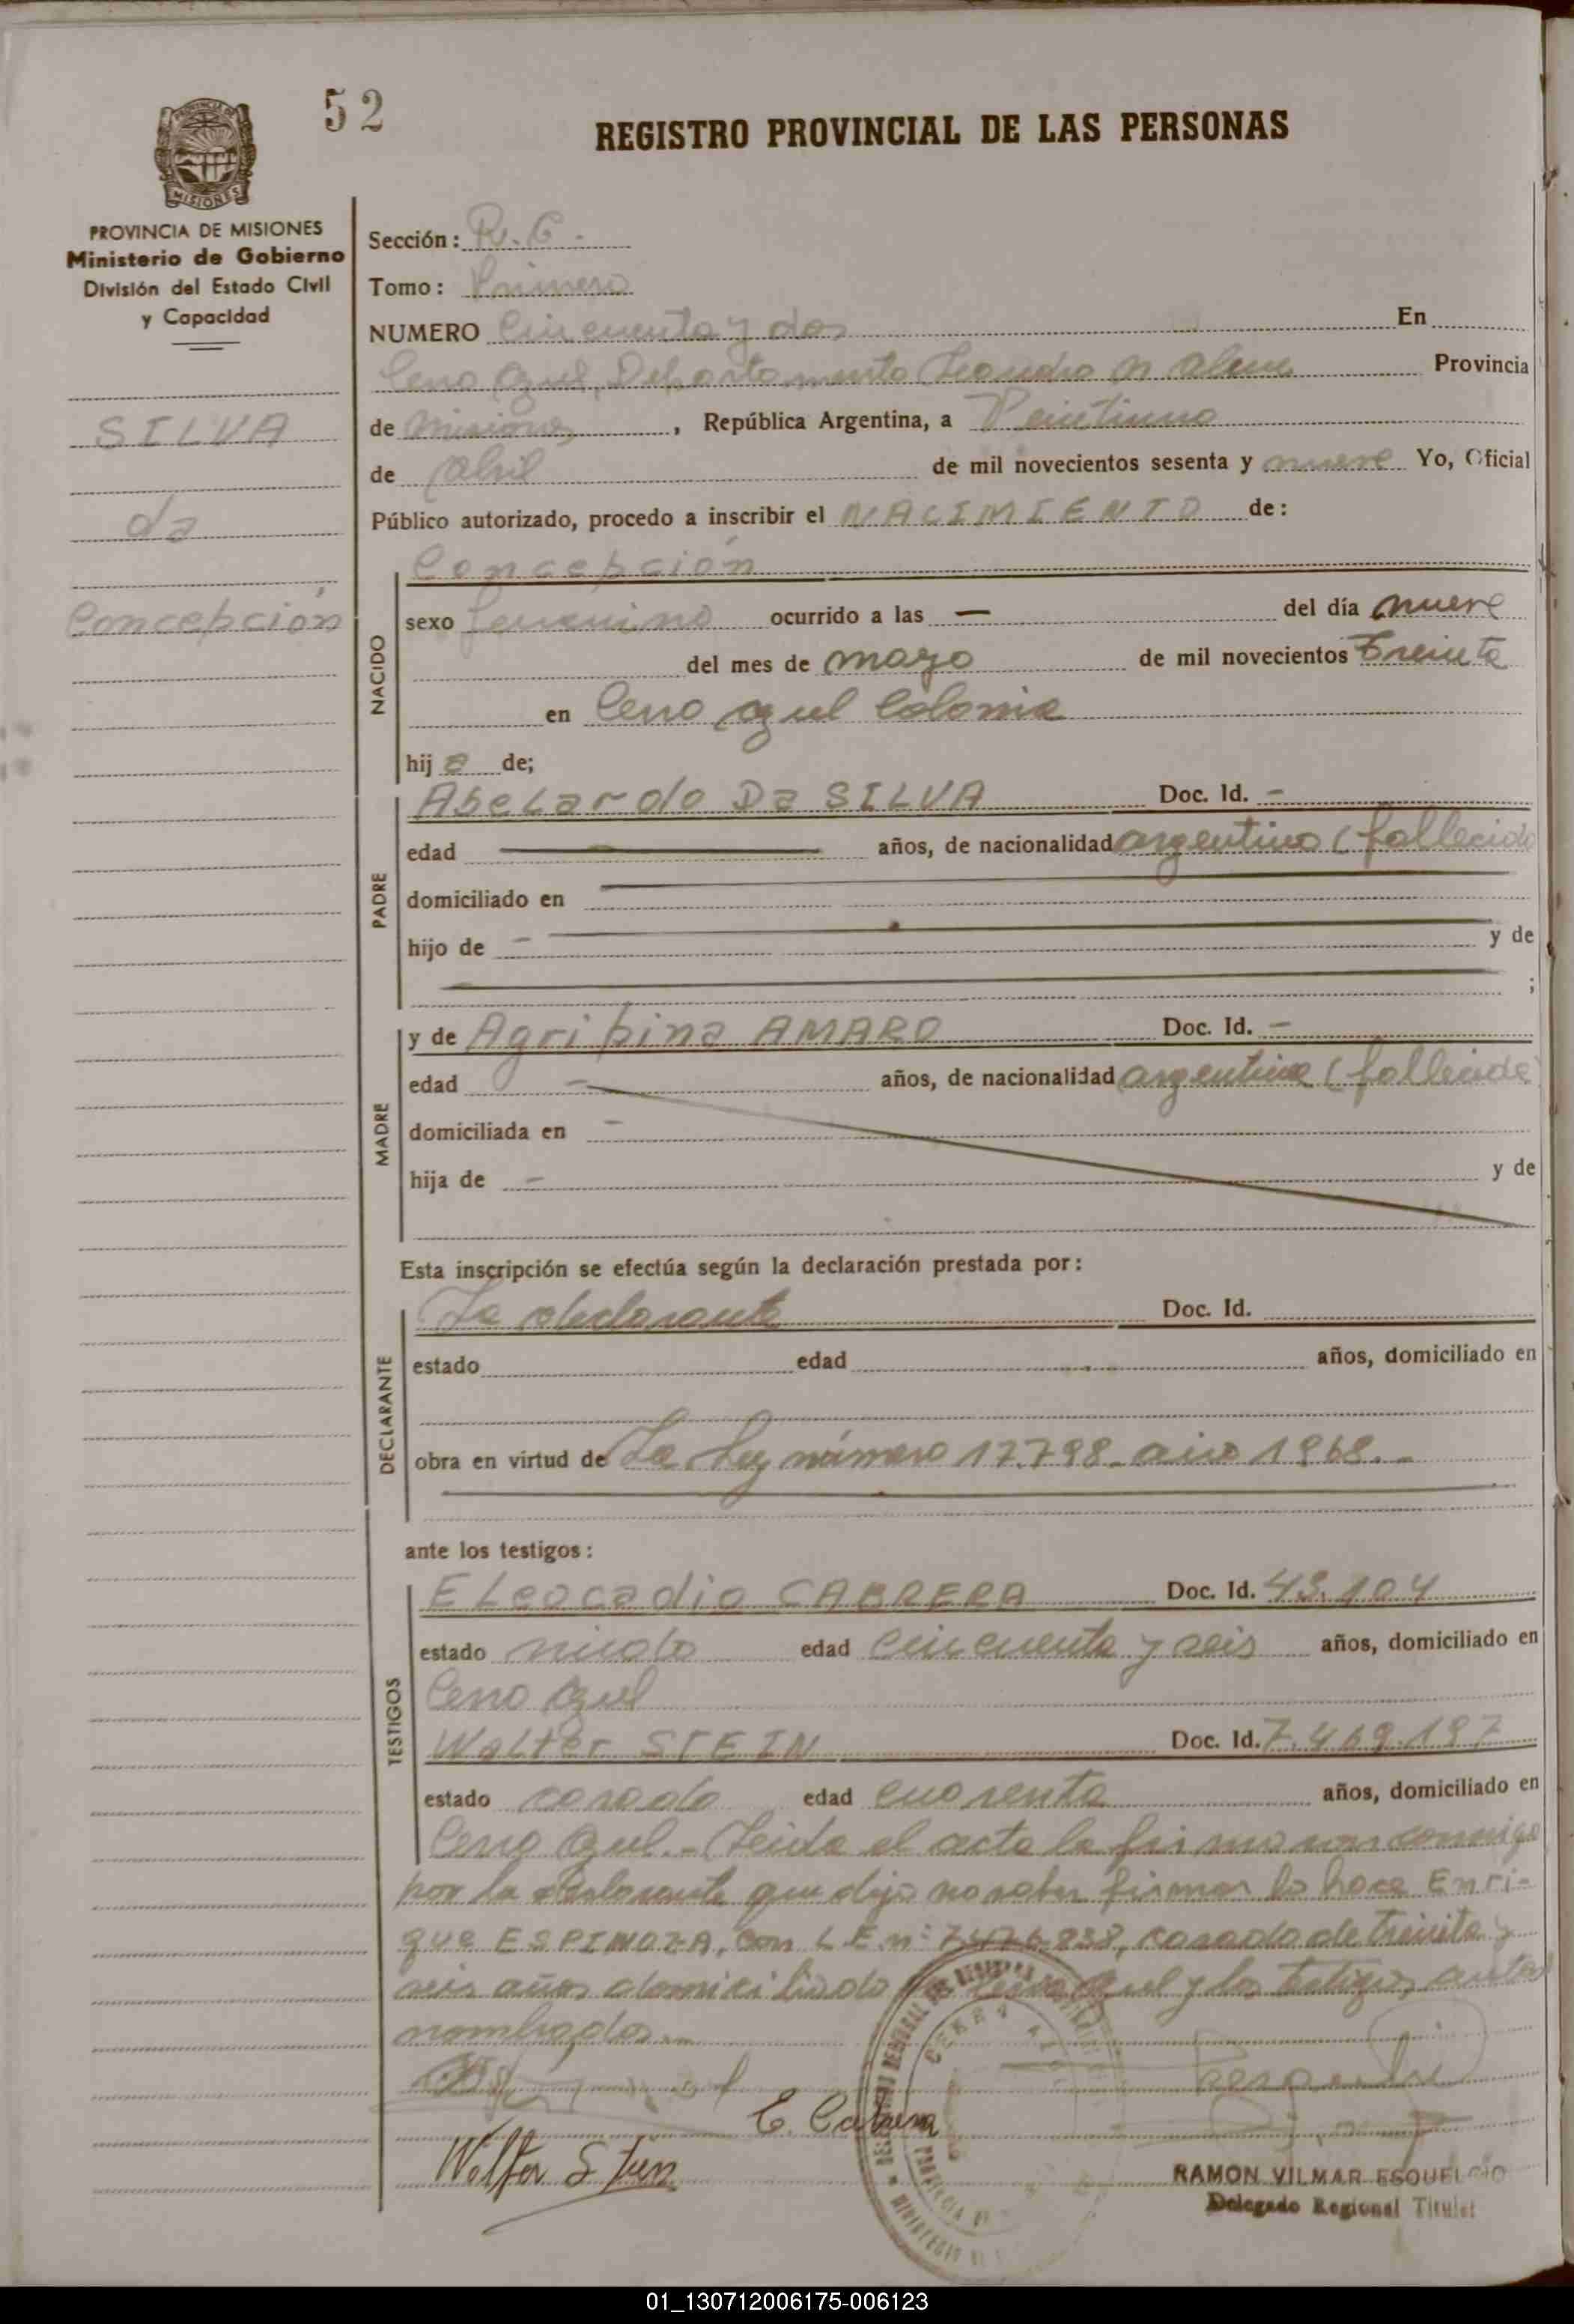 52
REGISTRO PROVINCIAL DE LAS PERSONAS
PROVINCIA DE MISIONES
Ministerio de Gobierno
División del Estado Civil
y Capacidad
SILVA
da
Concepción
Sección: R.C.
Tomo: Primero
NUMERO Cincuenta y dos En
Cerro Azul, Departamento Leandro N. Alem Provincia
de Misiones, República Argentina, a Veintiuno
de Abril de mil novecientos sesenta y nueve Yo, Oficial
Público autorizado, procedo a inscribir el NACIMIENTO de:
NACIDO
Concepción
sexo femenino ocurrido a las — del día nueve
del mes de mayo de mil novecientos Treinta
en Cerro Azul Colonia
hija de;
PADRE
Abelardo Da SILVA Doc. Id. -
edad años, de nacionalidad argentino (fallecido
domiciliado en
hijo de - y de
;
MADRE
y de Agripina AMARO Doc. Id. -
edad - años, de nacionalidad argentina (fallecida
domiciliada en -
hija de - y de
Esta inscripción se efectúa según la declaración prestada por:
DECLARANTE
La declarante Doc. Id.
estado edad años, domiciliado en
obra en virtud de La Ley número 17.798 - año 1968.-
ante los testigos:
TESTIGOS
ELeocadio CABRERA Doc. Id. 43.104
estado viudo edad cincuenta y seis años, domiciliado en
Cerro Azul
Walter STEIN Doc. Id. 7.469.197
estado casado edad cuarenta años, domiciliado en
Cerro Azul.- Leída el acta la firman conmigo
por la declarante que dijo no saber firmar lo hace Enri-
que ESPINOZA, con L.E. nº 7.476.838, casado de treinta y
seis años domiciliado en Cerro Azul y los testigos antes
nombrados.-
E. Cabrera
Walter Stein
RAMON VILMAR ESQUELCIO
Delegado Regional Titular
01_130712006175-006123